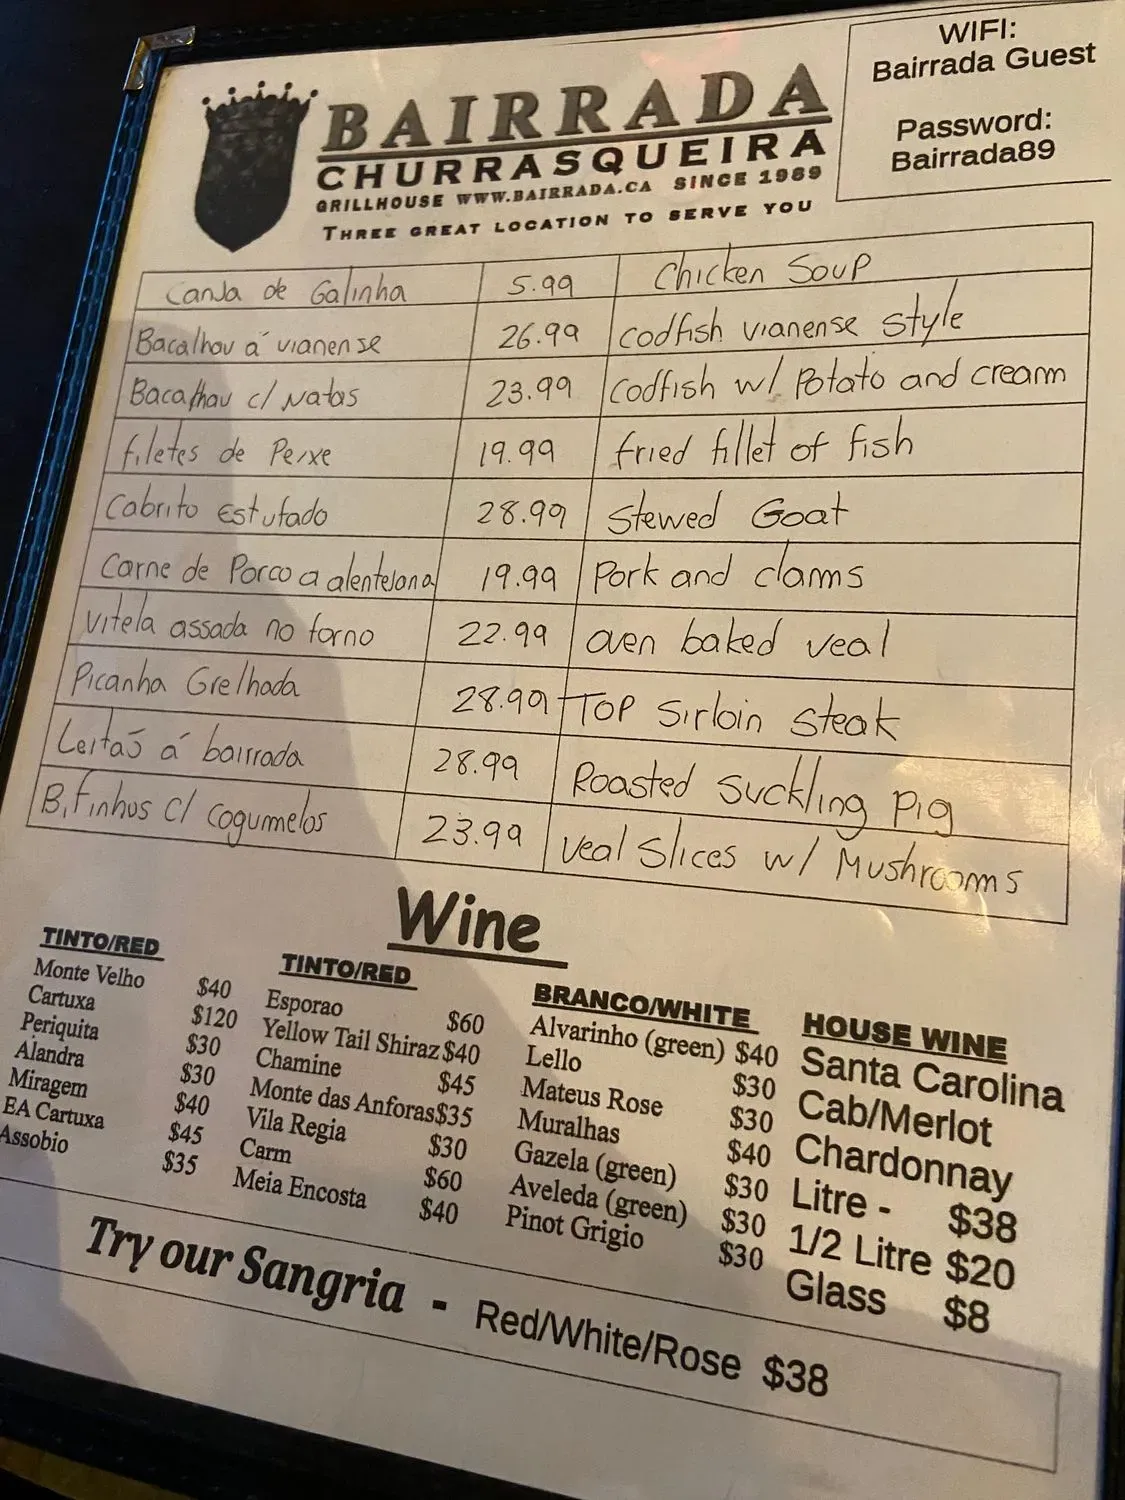 WIFI:
Bairrada Guest
Password:
Bairrada89
BAIRRADA
CHURRASQUEIRA
GRILLHOUSE WWW.BAIRRADA.CA SINCE 1989
THREE GREAT LOCATION TO SERVE YOU
Canja de Galinha 5.99 Chicken Soup
Bacalhau á vianense 26.99 codfish vianense style
Bacalhau c/ Natas 23.99 codfish w/ Potato and cream
filetes de Peixe 19.99 fried fillet of fish
Cabrito Estufado 28.99 Stewed Goat
Carne de Porco a alentejana 19.99 Pork and clams
Vitela assada no forno 22.99 oven baked veal
Picanha Grelhada 28.99 Top Sirloin Steak
Leitaõ á bairrada 28.99 Roasted Suckling Pig
Bifinhos c/ cogumelos 23.99 Veal Slices w/ Mushrooms
Wine
TINTO/RED
Monte Velho $40
Cartuxa $120
Periquita $30
Alandra $30
Miragem $40
EA Cartuxa $45
Assobio $35
TINTO/RED
Esporao $60
Yellow Tail Shiraz $40
Chamine $45
Monte das Anforas $35
Vila Regia $30
Carm $60
Meia Encosta $40
BRANCO/WHITE
Alvarinho (green) $40
Lello $30
Mateus Rose $30
Muralhas $40
Gazela (green) $30
Aveleda (green) $30
Pinot Grigio $30
HOUSE WINE
Santa Carolina
Cab/Merlot
Chardonnay
Litre - $38
1/2 Litre $20
Glass $8
Try our Sangria - Red/White/Rose $38